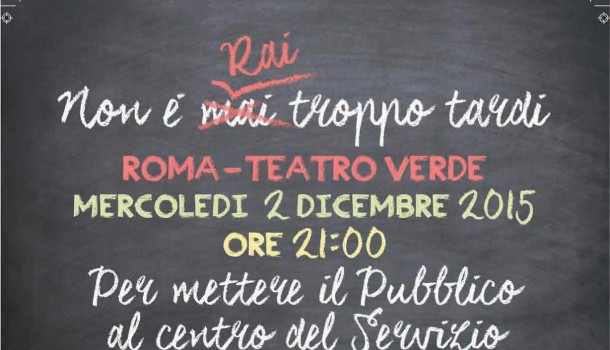 Rai
Non é mai troppo tardi
ROMA-TEATRO VERDE
MERCOLEDI 2 DICEMBRE 2015
ORE 21:00
Per mettere il Pubblico
al centro del Servizio